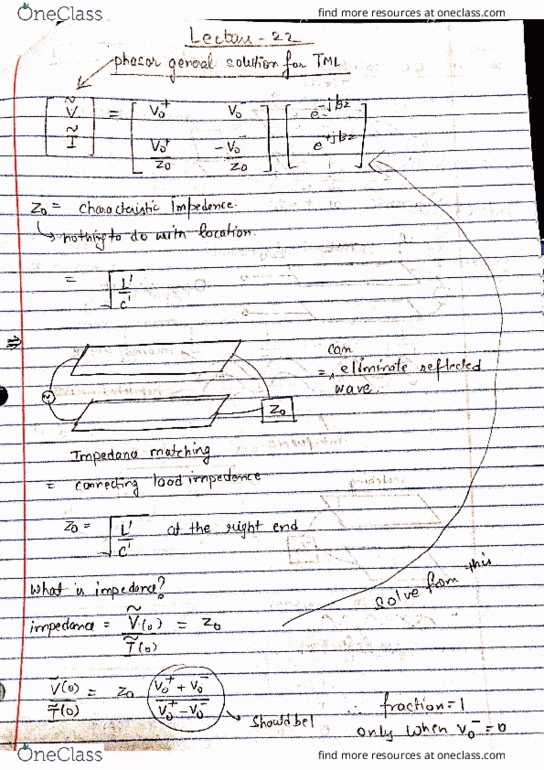 OneClass
find more resources at oneclass.com
Lecture - 22
phasor general solution for TML
[Ṽ Ĩ] = [V₀⁺ V₀⁻ ; V₀⁺/Z₀ -V₀⁻/Z₀] [e^-jβz ; e^+jβz]
Z₀ = characteristic Impedence.
↳ nothing to do with location.
= √(L'/C')
can
= eliminate reflected
wave.
Z₀
Impedana matching
= connecting load impedence
Z₀ = √(L'/C') at the right end
What is impedance?
solve from this
impedance = Ṽ(0)/Ĩ(0) = Z₀
Ṽ(0)/Ĩ(0) = Z₀ (V₀⁺ + V₀⁻)/(V₀⁺ - V₀⁻)
↳ Should be 1
∴ fraction = 1
only when V₀⁻ = 0
OneClass
find more resources at oneclass.com